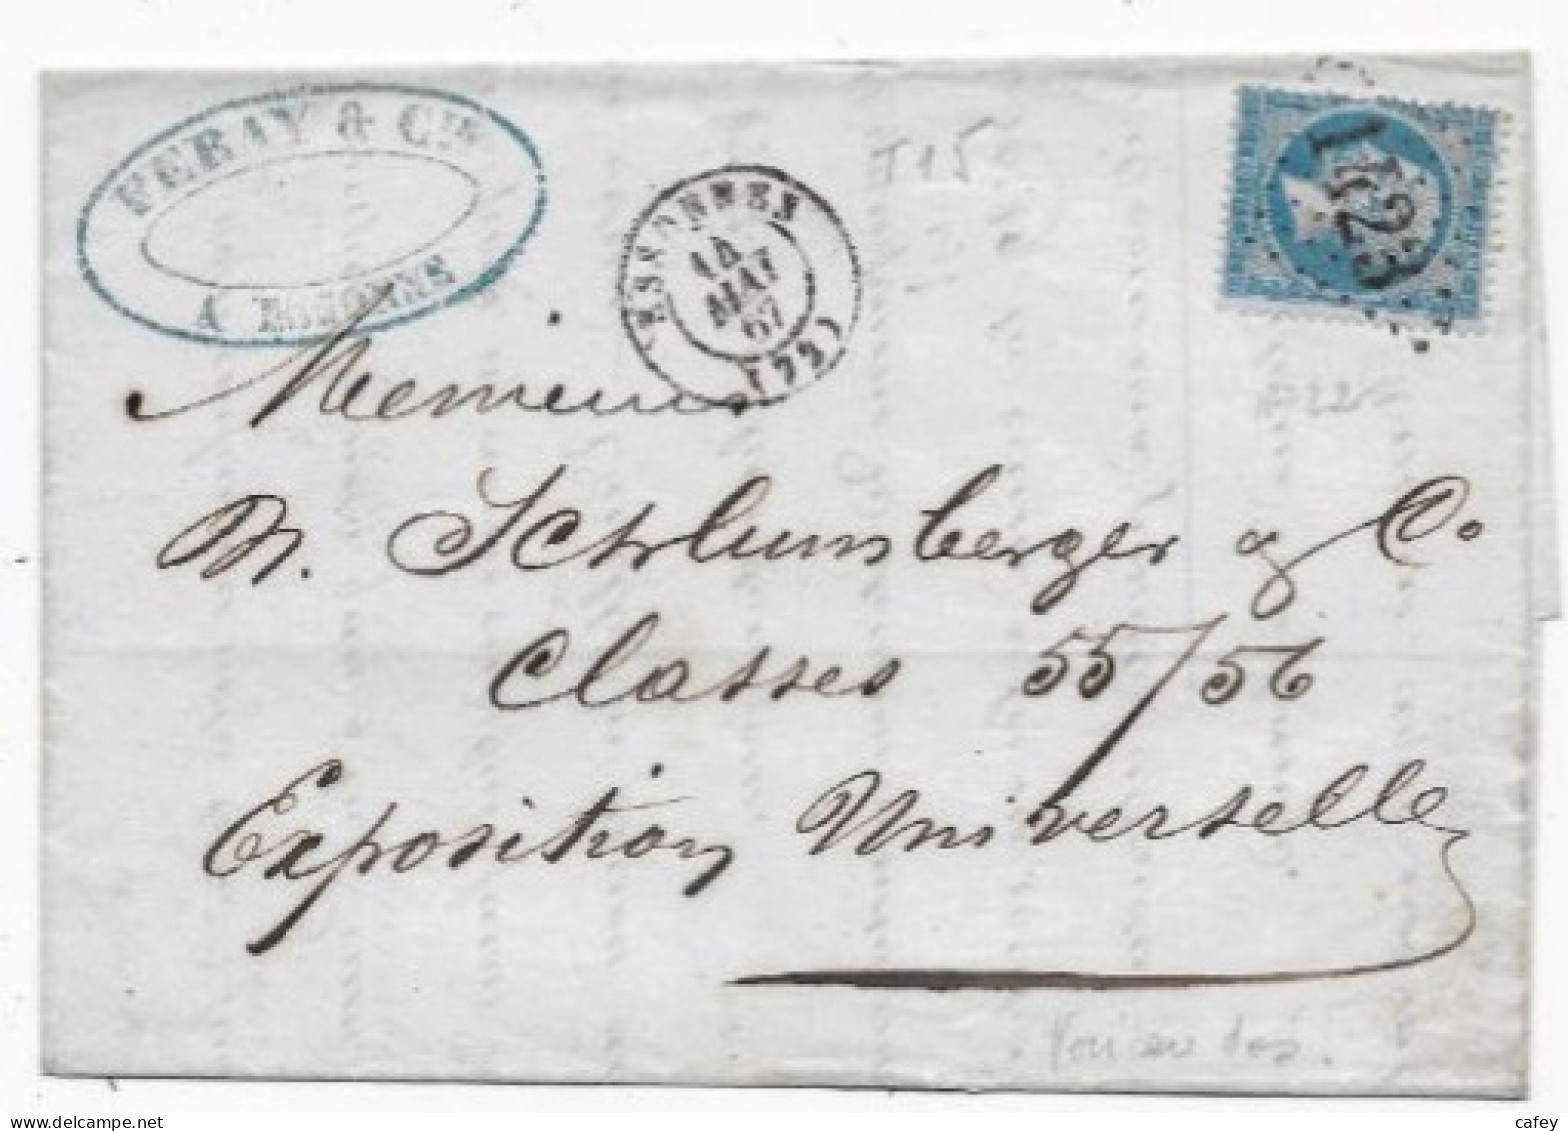 FERAY & CIE
A ESSONNES
T15
ESSONNES
14
MAI
67
(72)
1423
n°22
Messieurs
N. Schlumberger & Co
Classes 55/56
Exposition Universelle
Voir au dos.
www.delcampe.net
cafey